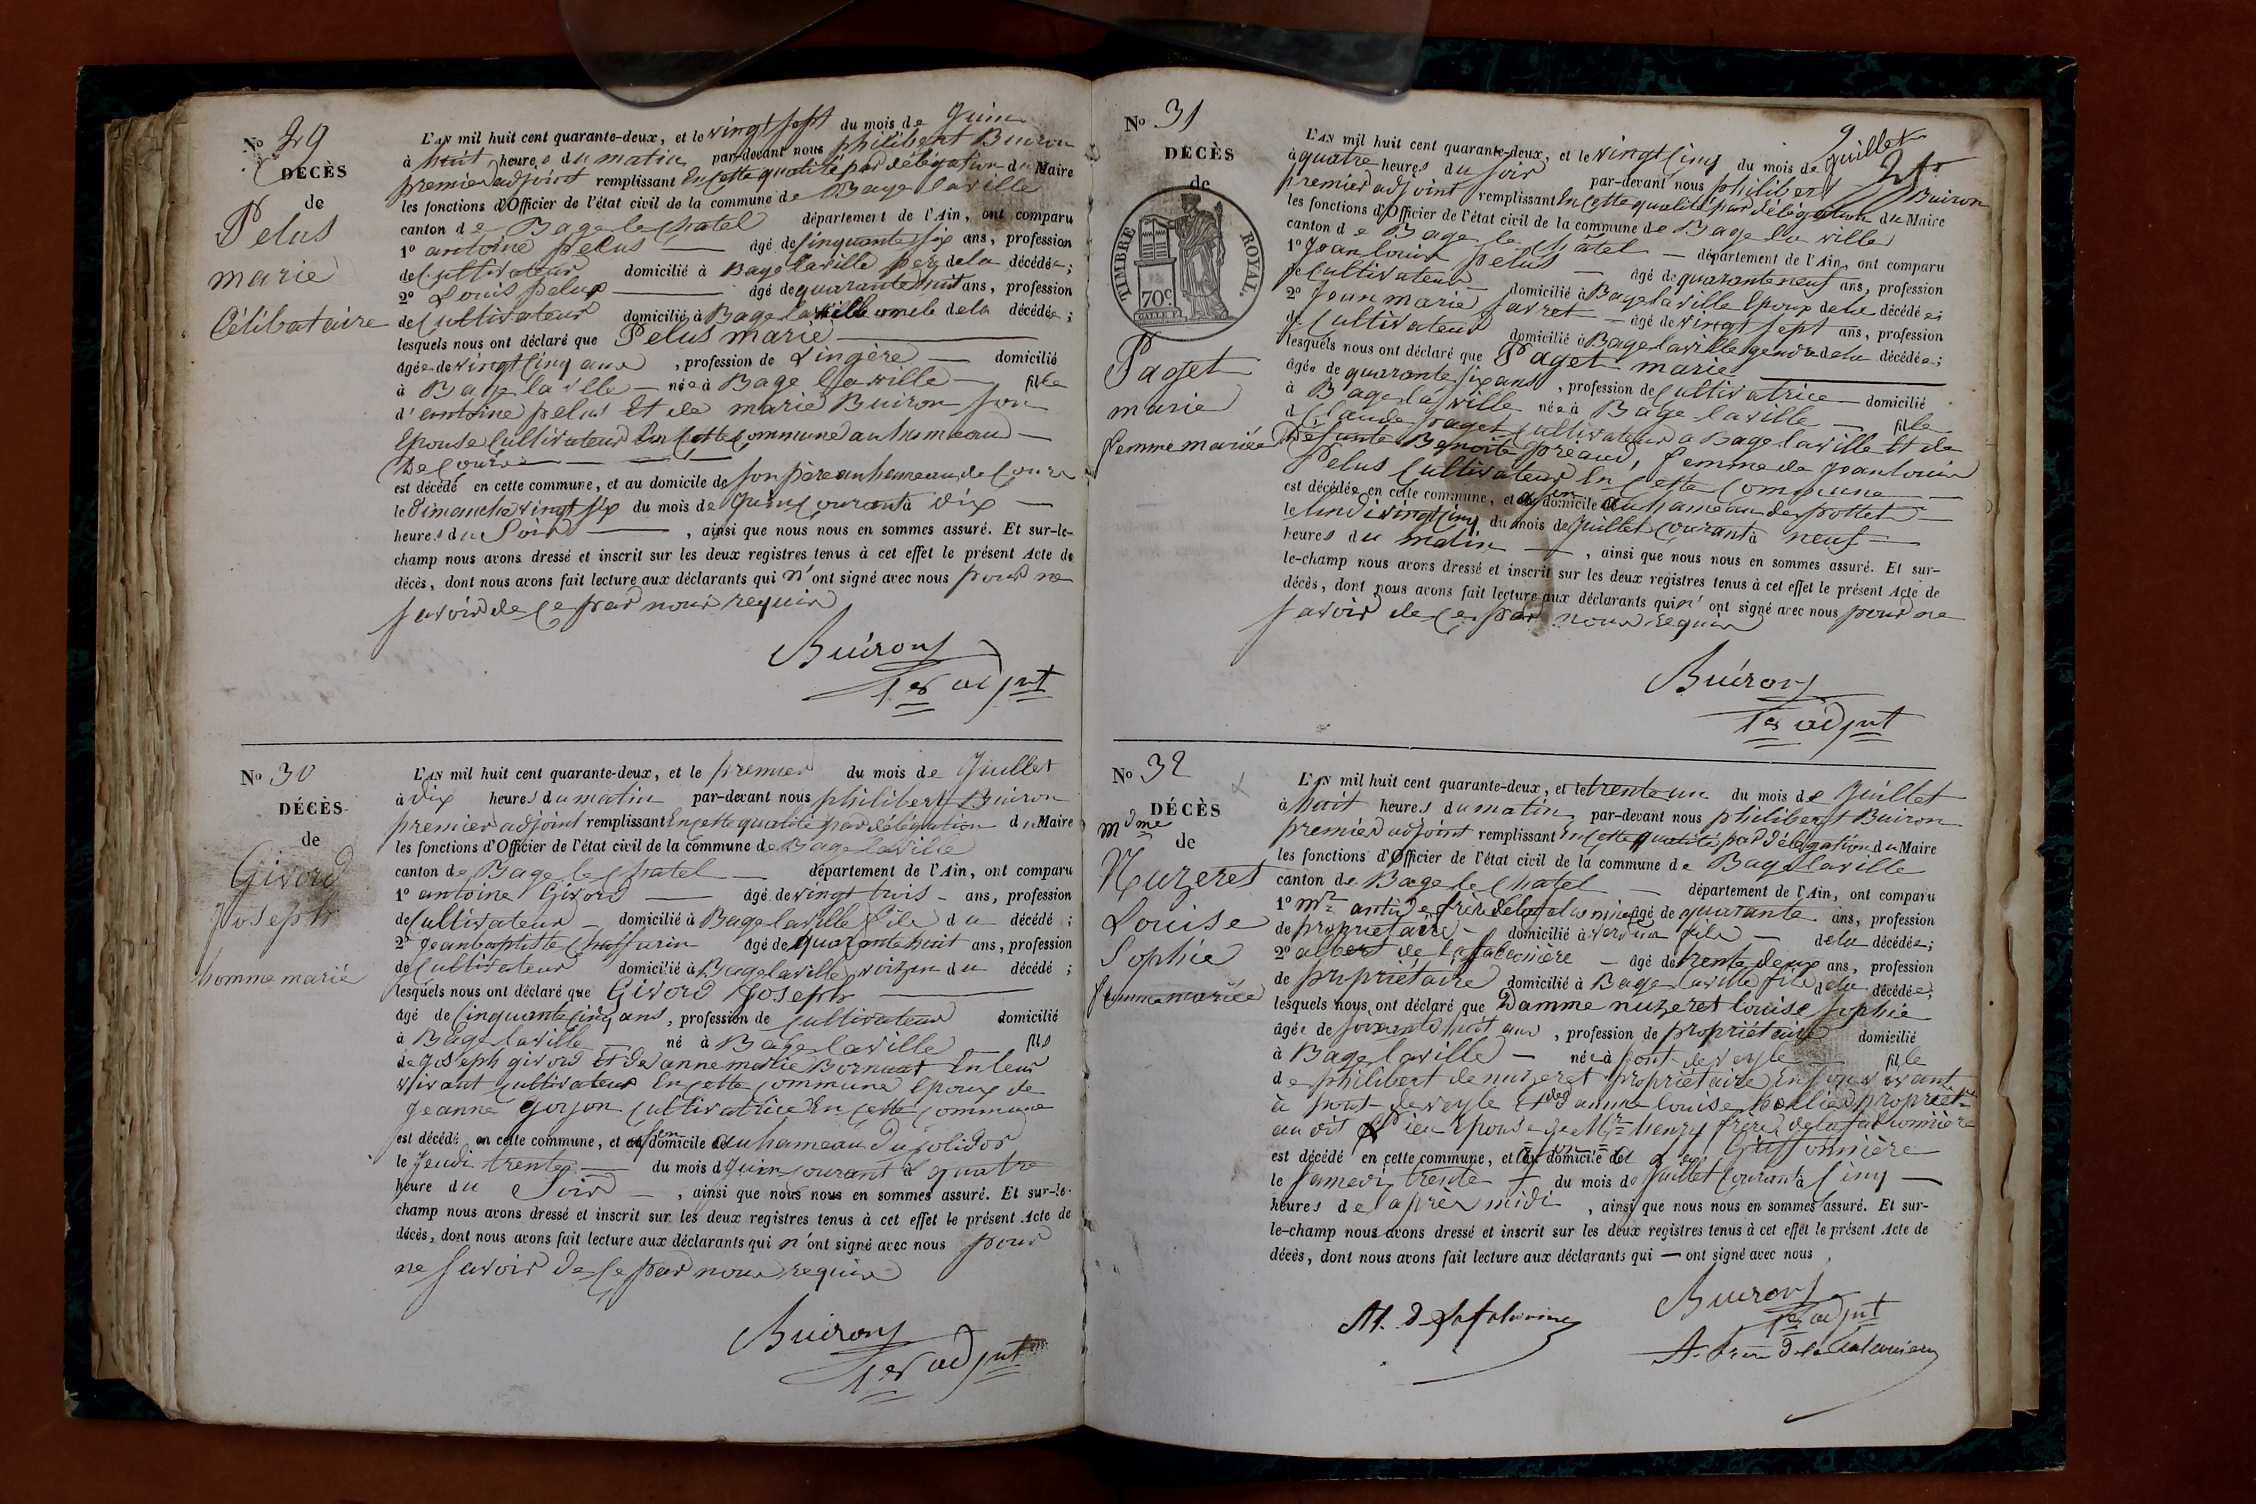 No 29
DÉCÈS
de
Pelus
marie
Célibataire
L'AN mil huit cent quarante-deux, et le vingt sept du mois de Juin
à huit heures du matin par-devant nous philibert Buiron
premier adjoint remplissant En cette qualité par délégation du Maire
les fonctions d'Officier de l'état civil de la commune de Bage laville
canton de Bage le Chatel département de l'Ain, ont comparu
1º antoine pelus âgé de Cinquante Six ans, profession
de Cultivateur domicilié à Bage laville pere de la décédée;
2º Louis pelus âgé de quarante huit ans, profession
de Cultivateur domicilié à Bage laville oncle de la décédée;
lesquels nous ont déclaré que Pelus marie
âgée de vingt Cinq ans, profession de Lingère domicilié
à Bage la ville née à Bage la ville fille
d'antoine pelus Et de marie Buiron Son
Epouse Cultivateur En Cette Commune au hameau
De Cours
est décédé en cette commune, et au domicile de Son père au hameau de Cours
le Dimanche vingt Six du mois de Juin Courant à Dix
heures du Soir, ainsi que nous nous en sommes assuré. Et sur-le-
champ nous avons dressé et inscrit sur les deux registres tenus à cet effet le présent Acte de
décès, dont nous avons fait lecture aux déclarants qui n'ont signé avec nous pour ne
Savoir de Ce par nous requis
Buiron
1er adjnt
No 30
DÉCÈS
de
Givord
Joseph
homme marié
L'AN mil huit cent quarante-deux, et le premier du mois de Juillet
à Dix heures du matin par-devant nous philibert Buiron
premier adjoint remplissant En cette qualité par délégation du Maire
les fonctions d'Officier de l'état civil de la commune de Bage laville
canton de Bage le Chatel département de l'Ain, ont comparu
1º antoine Givord âgé de vingt trois ans, profession
de Cultivateur domicilié à Bage laville fils du décédé;
2º Jean baptiste Chaffurin âgé de quarante huit ans, profession
de Cultivateur domicilié à Bage laville voizin du décédé;
lesquels nous ont déclaré que Givord Joseph
âgé de Cinquante Cinq ans, profession de Cultivateur domicilié
à Bage laville né à Bage laville fils
de Joseph givord Et de anne marie Bornuat En leur
vivant Cultivateur En Cette Commune Epoux de
Jeanne goyon Cultivatrice En Cette Commune
est décédé en cette commune, et a Son domicile au hameau du
le Jeudi trente du mois de Juin Courant à quatre
heure du Soir, ainsi que nous nous en sommes assuré. Et sur-le-
champ nous avons dressé et inscrit sur les deux registres tenus à cet effet le présent Acte de
décès, dont nous avons fait lecture aux déclarants qui n'ont signé avec nous pour
ne Savoir De Ce par nous requis
Buiron
1er adjnt
No 31
DÉCÈS
de
TIMBRE ROYAL.
70c
Paget
marie
femme mariée
L'AN mil huit cent quarante-deux, et le vingt Cinq du mois de Juillet
à quatre heures du Soir par-devant nous philibert Buiron
premier adjoint remplissant En cette qualité par délégation du Maire
les fonctions d'Officier de l'état civil de la commune de Bage la ville
canton de Bage le Chatel département de l'Ain, ont comparu
1º Jean louis pelus âgé de quarante neuf ans, profession
de Cultivateur domicilié à Bage laville Epoux de la décédée;
2º Jean marie favret âgé de vingt Sept ans, profession
de Cultivateur domicilié à Bage laville gendre de la décédée;
lesquels nous ont déclaré que Paget marie
âgée de quarante Six ans, profession de Cultivatrice domicilié
à Bage la ville née à Bage laville fille
d Claude paget Cultivateur a Bage laville Et de
Défunte Benoite preaud, femme de Jean louis
Pelus Cultivateur En Cette Commune
est décédée en cette commune, et a Son domicile au hameau des pottets
le lundi vingt Cinq du mois de Juillet Courant à neuf
heures du matin, ainsi que nous nous en sommes assuré. Et sur-
le-champ nous avons dressé et inscrit sur les deux registres tenus à cet effet le présent Acte de
décès, dont nous avons fait lecture aux déclarants qui n'ont signé avec nous pour ne
Savoir de Ce par nous requis
Buiron
1er adjnt
No 32
DÉCÈS
mdme
de
Nuzeret
Louise
Sophie
femme mariée
L'AN mil huit cent quarante-deux, et le trente un du mois de Juillet
à huit heures du matin par-devant nous philibert Buiron
premier adjoint remplissant En cette qualité par délégation du Maire
les fonctions d'Officier de l'état civil de la commune de Bage laville
canton de Bage le Chatel département de l'Ain, ont comparu
1º mr frere âgé de quarante ans, profession
de proprietaire domicilié à verdun fils de la décédée;
2º albert de la falconière âgé de trente deux ans, profession
de propriétaire domicilié à Bage laville fils de la décédée;
lesquels nous ont déclaré que Damme nuzeret louise Sophie
âgée de Soixante huit ans, profession de propriétaire domicilié
à Bage laville née à pont de veyle fille
de philibert de nuzeret propriétaire En Son vivant
à pont de veyle Et de damme louise propriétre
au dit lieu Epouse de Mr henry frere de la falconnière
est décédé en cette commune, et au domicile de
le Samedi trente du mois de Juillet Courant à Cinq
heures de laprès midi, ainsi que nous nous en sommes assuré. Et sur-
le-champ nous avons dressé et inscrit sur les deux registres tenus à cet effet le présent Acte de
décès, dont nous avons fait lecture aux déclarants qui — ont signé avec nous
Buiron
1er adjnt
Al. de Lafalconiere
A. frere de la falconiere